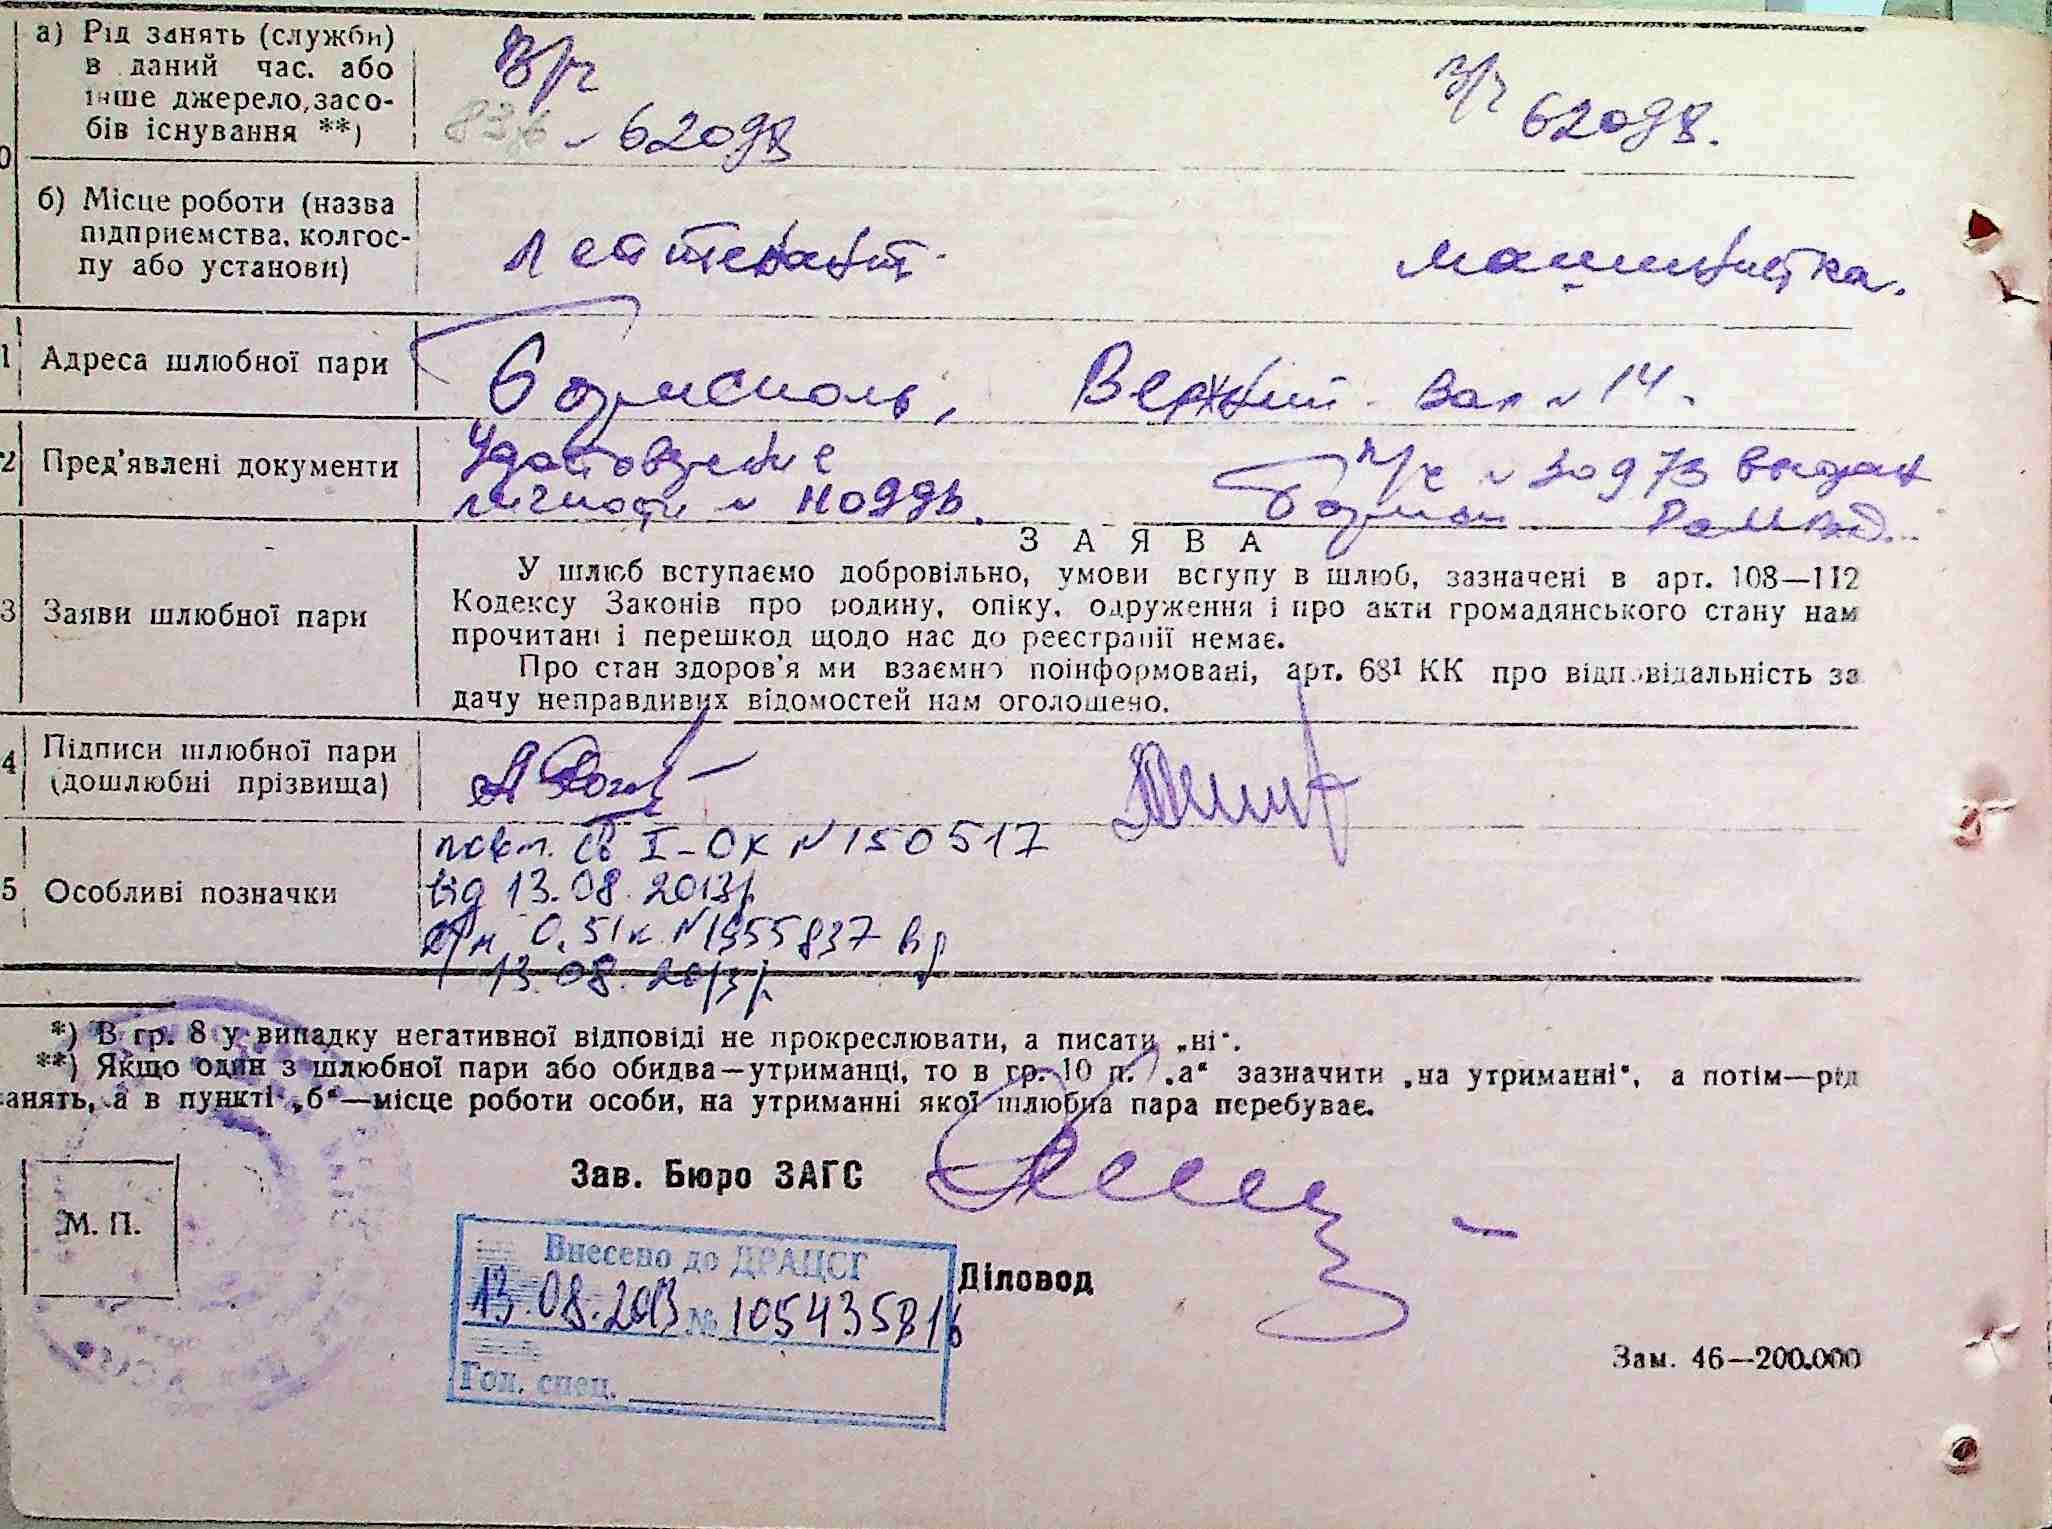 а) Рід занять (служби)
в даний час. або
інше джерело, засо-
бів існування **)
в/ч
в/ч
62098
62098.
б) Місце роботи (назва
підприємства, колгос-
пу або установи)
лейтенант
машинистка.
1 Адреса шлюбної пари
Борисполь, Верхний Вал № 14.
2 Пред'явлені документи
Удостоверение
личности №
п/с № 30973 выдан
З А Я В А
3 Заяви шлюбної пари
У шлюб вступаємо добровільно, умови вступу в шлюб, зазначені в арт. 108—112
Кодексу Законів про родину, опіку, одруження і про акти громадянського стану нам
прочитані і перешкод щодо нас до реєстрації немає.
Про стан здоров'я ми взаємно поінформовані, арт. 68¹ КК про відповідальність за
дачу неправдивих відомостей нам оголошено.
4 Підписи шлюбної пари
(дошлюбні прізвища)
5 Особливі позначки
повт. св І-ОК №150517
від 13.08.2013р
0,51к №1955837 від
13.08.2013р.
*) В гр. 8 у випадку негативної відповіді не прокреслювати, а писати „ні“.
**) Якщо один з шлюбної пари або обидва—утриманці, то в гр. 10 п. „а“ зазначити „на утриманні“, а потім—рід
занять, а в пункті „б“—місце роботи особи, на утриманні якої шлюбна пара перебуває.
Зав. Бюро ЗАГС
М. П.
Внесено до ДРАЦСГ
13.08.2013 № 105435816
Гол. спец.
Діловод
Зам. 46—200.000